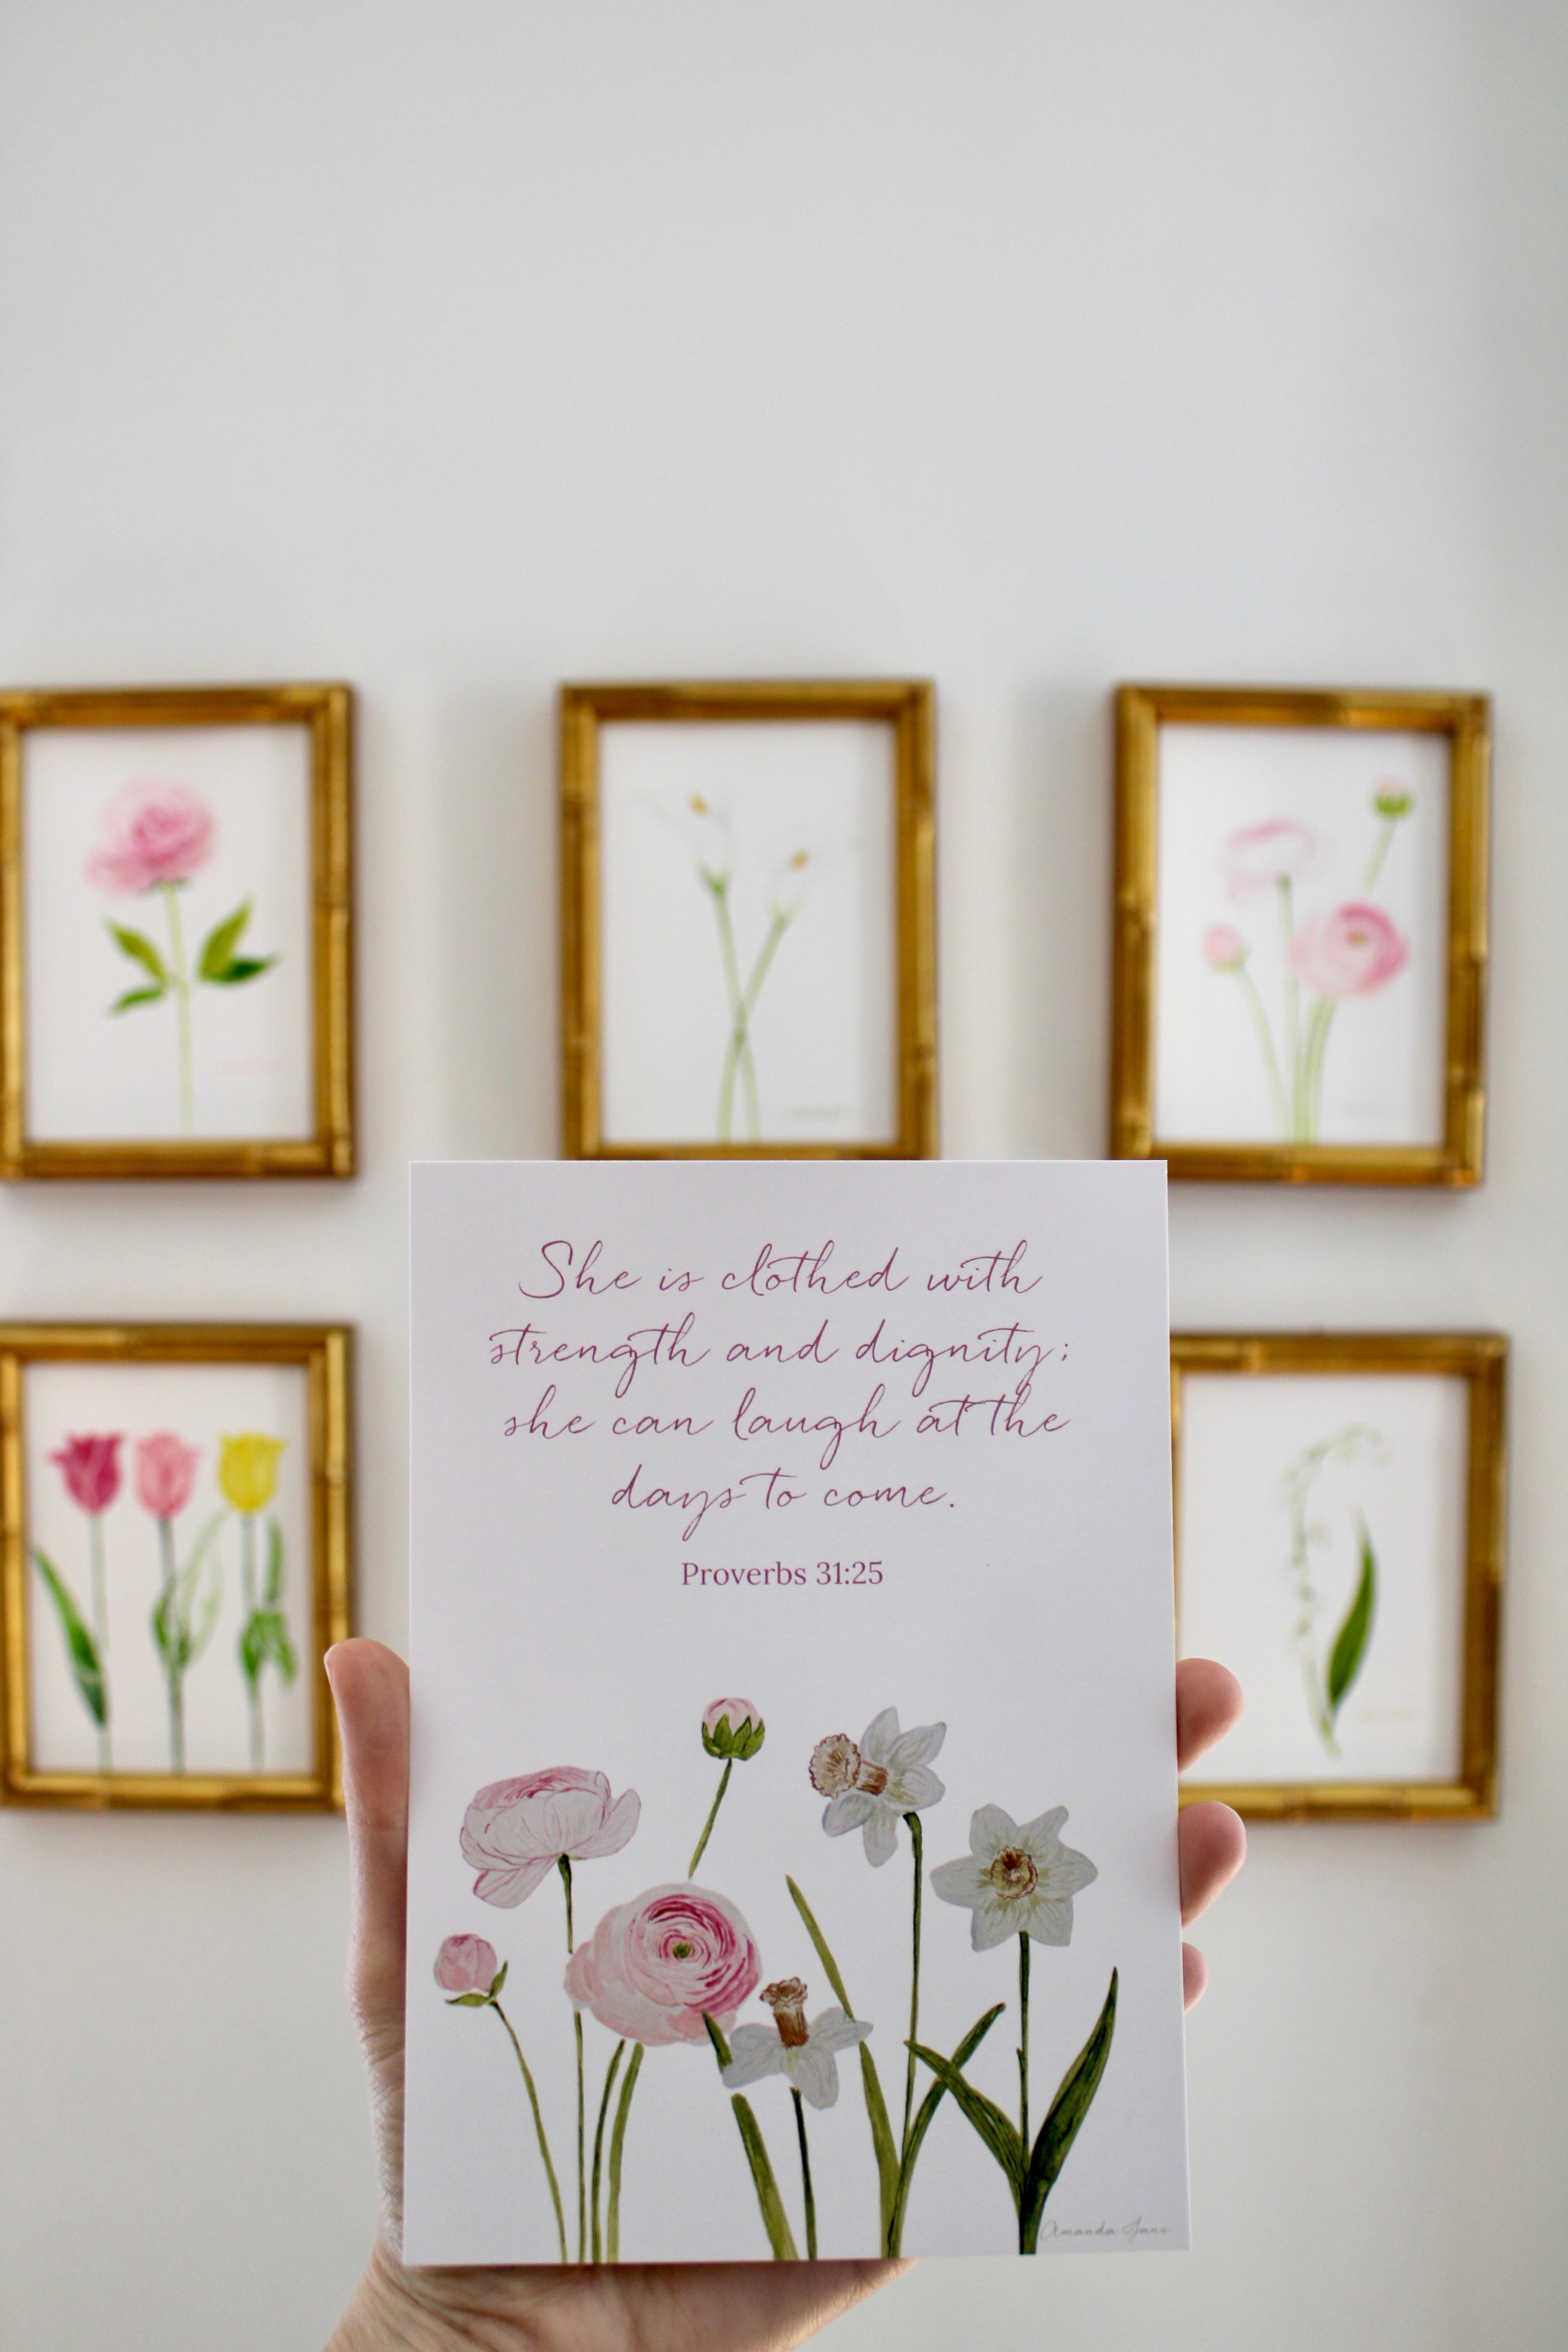 She is clothed with
strength and dignity;
she can laugh at the
days to come.
Proverbs 31:25
Amanda Jane